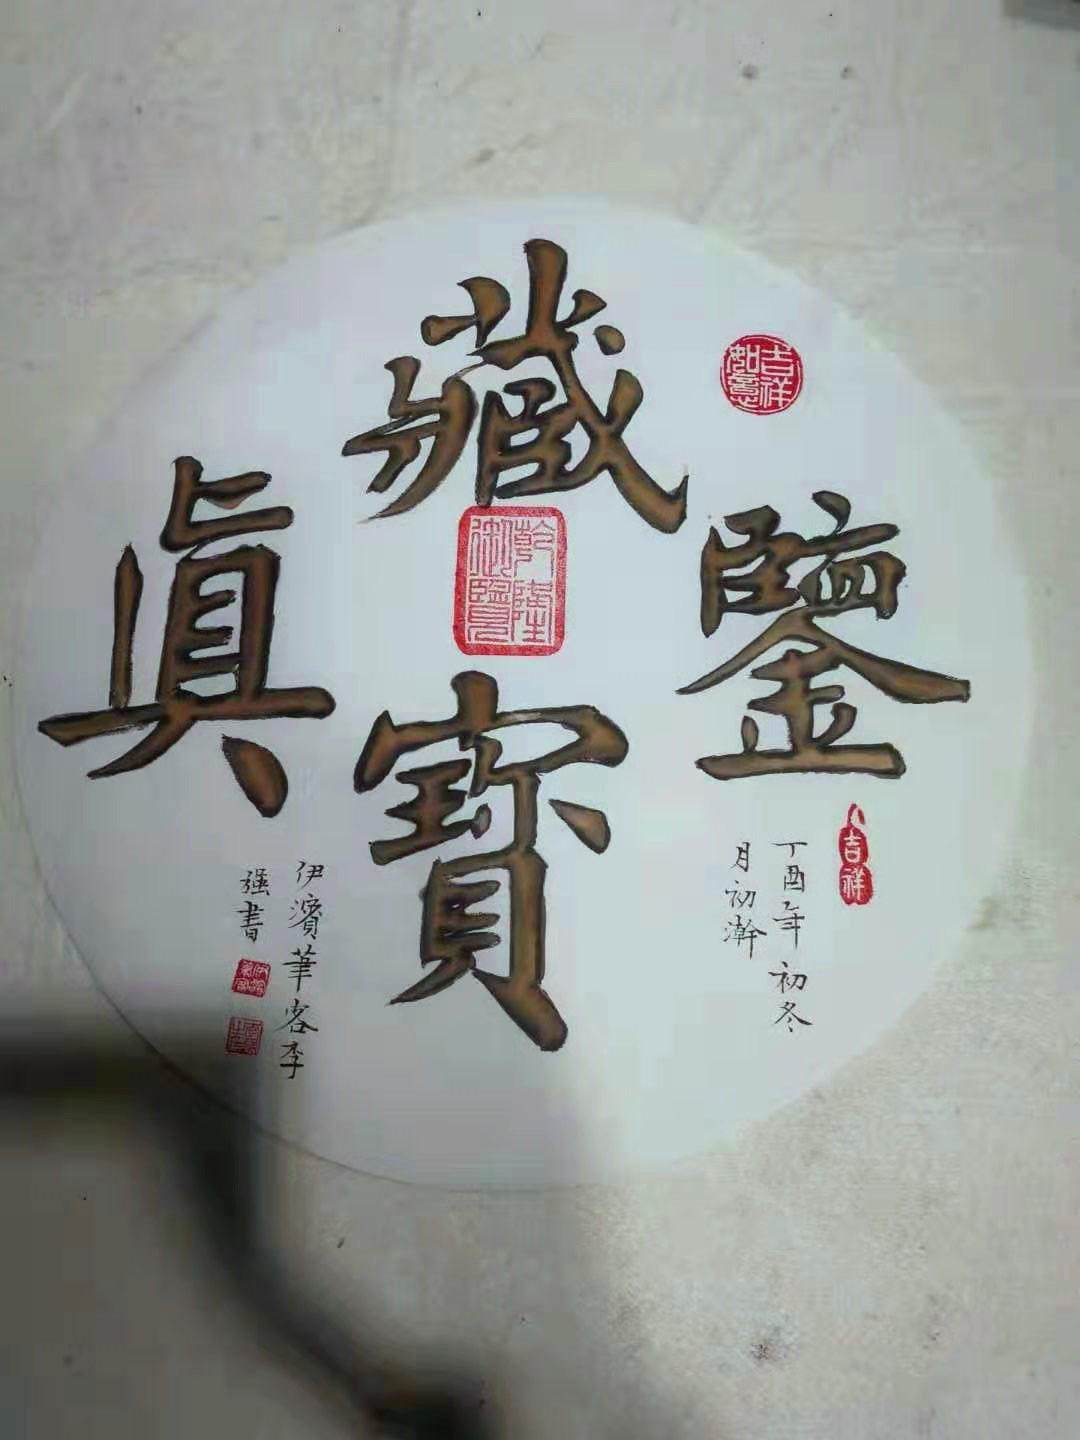 藏
寶
鑒
眞
吉祥
如意
乾隆
御覽
吉祥
丁酉年初冬
月初瀚
伊濱筆客李
强書